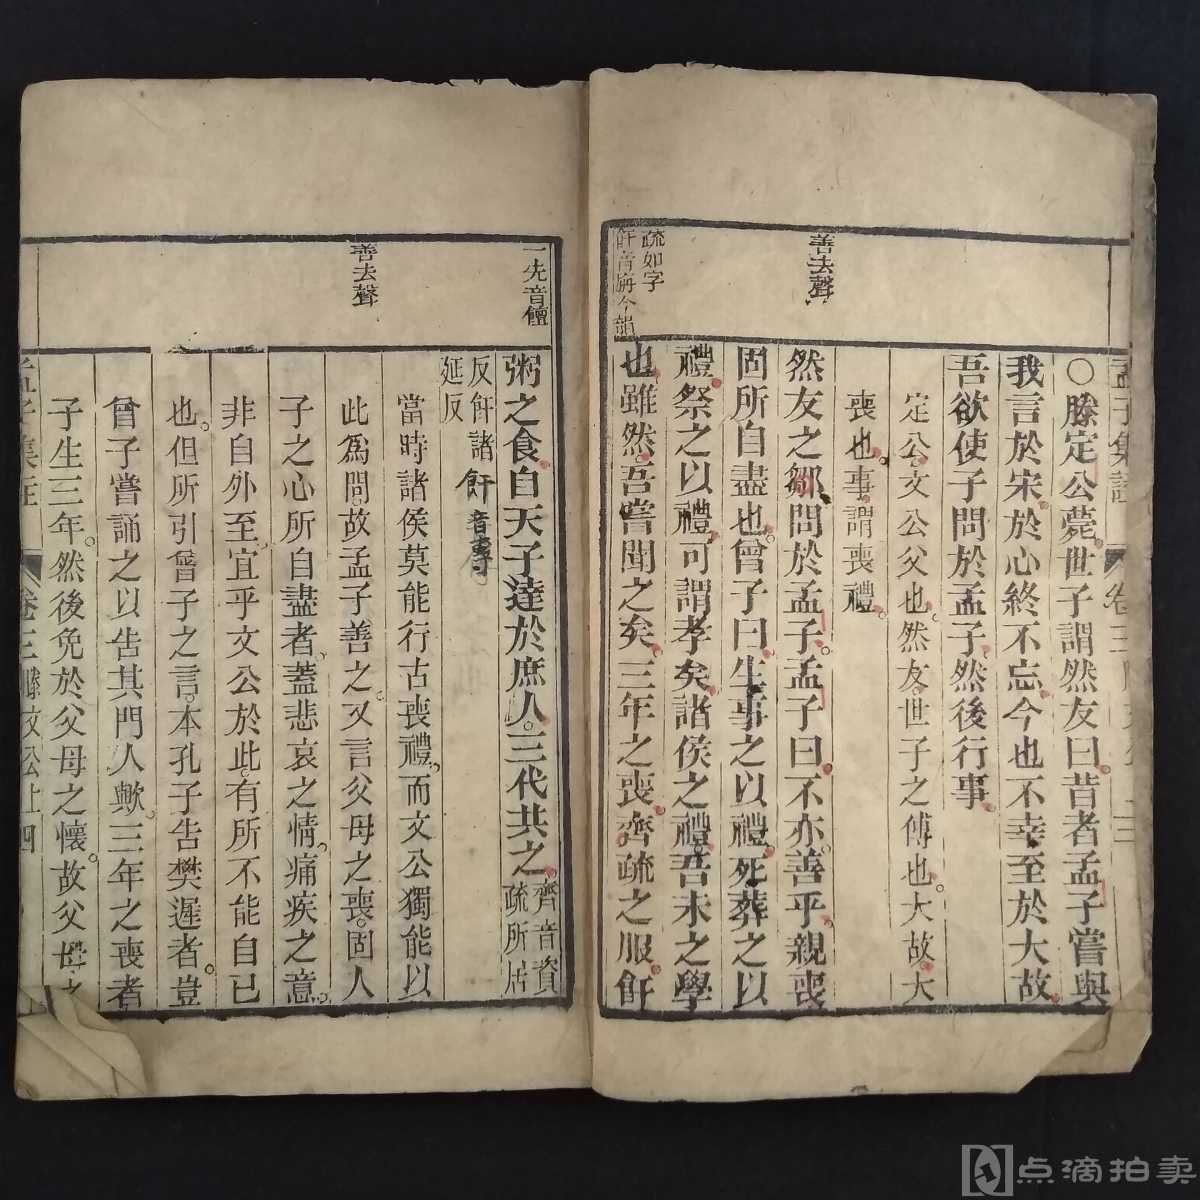 孟子集註
卷三
善去聲
疏如字
○滕定公薨。世子謂然友曰。昔者孟子嘗與
我言於宋。於心終不忘。今也不幸至於大故。
吾欲使子問於孟子。然後行事。
定公。文公父也。然友。世子之傅也。大故。大
喪也。事。謂喪禮。
然友之鄒。問於孟子。孟子曰。不亦善乎。親喪
固所自盡也。曾子曰。生事之以禮。死葬之以
禮。祭之以禮。可謂孝矣。諸侯之禮。吾未之學
也。雖然。吾嘗聞之矣。三年之喪。齊疏之服。飦
一先音饘
善去聲
粥之食。自天子達於庶人。三代共之。齊音資
疏所居
反飦諸
延反
飦音專
當時諸侯莫能行古喪禮。而文公獨能以
此為問。故孟子善之。又言父母之喪。固人
子之心所自盡者。蓋悲哀之情。痛疾之意。
非自外至。宜乎文公於此。有所不能自已
也。但所引曾子之言。本孔子告樊遲者。豈
曾子嘗誦之以告其門人歟。三年之喪者
子生三年。然後免於父母之懷。故父母之
孟子集註
卷三滕文公上
四
点滴拍卖